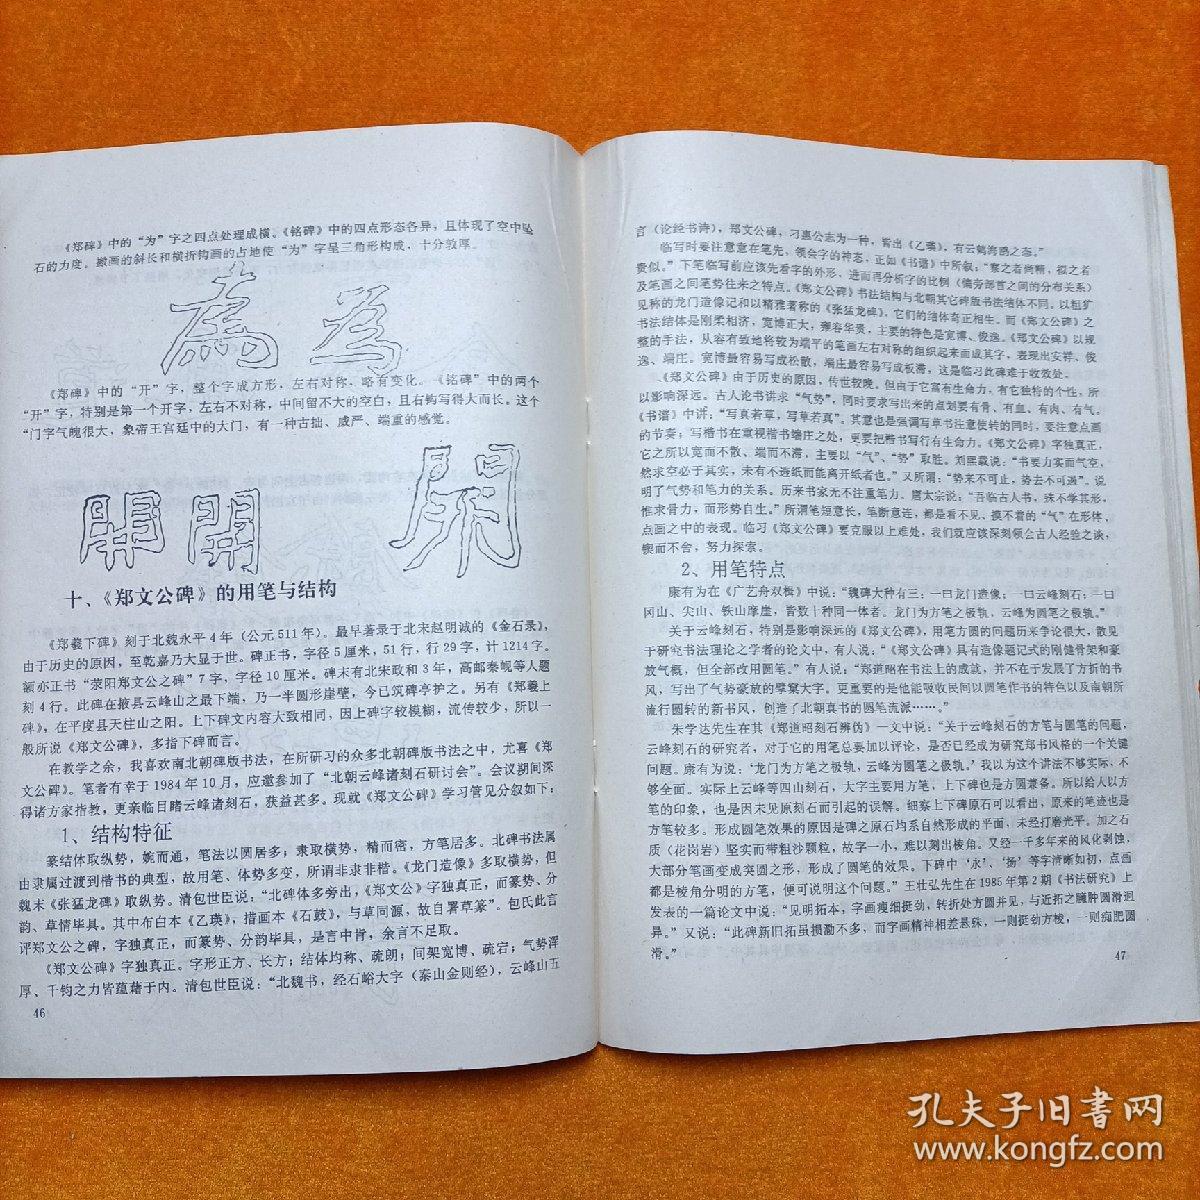 《郑碑》中的“为”字之四点处理成横。《铭碑》中的四点形态各异，且体现了空中坠
石的力度。撇画的斜长和横折钩画的占地使“为”字呈三角形构成，十分敦厚。
為 為
《郑碑》中的“开”字，整个字成方形，左右对称，略有变化。《铭碑》中的两个
“开”字，特别是第一个开字，左右不对称，中间留不大的空白，且右钩写得大而长。这个
“门字气魄很大，象帝王宫廷中的大门，有一种古拙、威严、端重的感觉。
開 開 開
十、《郑文公碑》的用笔与结构
《郑羲下碑》刻于北魏永平4年（公元511年）。最早著录于北宋赵明诚的《金石录》，
由于历史的原因，至乾嘉乃大显于世。碑正书，字径5厘米，51行，行29字，计1214字。
额亦正书“荥阳郑文公之碑”7字，字径10厘米。碑末有北宋政和3年，高邮秦岘等人题
刻4行。此碑在掖县云峰山之最下端，乃一半圆形崖壁，今已筑碑亭护之。另有《郑羲上
碑》，在平度县天柱山之阳。上下碑文内容大致相同，因上碑字较模糊，流传较少，所以一
般所说《郑文公碑》，多指下碑而言。
在教学之余，我喜欢南北朝碑版书法，在所研习的众多北朝碑版书法之中，尤喜《郑
文公碑》。笔者有幸于1984年10月，应邀参加了“北朝云峰诸刻石研讨会”。会议期间深
得诸方家指教，更亲临目睹云峰诸刻石，获益甚多。现就《郑文公碑》学习管见分叙如下：
1、结构特征
篆结体取纵势，婉而通，笔法以圆居多；隶取横势，精而密，方笔居多。北碑书法属
由隶属过渡到楷书的典型，故用笔、体势多变，所谓非隶非楷。《龙门造像》多取横势，但
魏末《张猛龙碑》取纵势。清包世臣说：“北碑体多旁出，《郑文公》字独真正，而篆势、分
韵、草情毕具。其中布白本《乙瑛》，措画本《石鼓》，与草同源，故自署草篆”。包氏此言
评郑文公之碑，字独真正，而篆势、分韵毕具，是言中肯，余言不足取。
《郑文公碑》字独真正。字形正方、长方；结体均称、疏朗；间架宽博、疏宕；气势浑
厚、千钧之力皆蕴藉于内。清包世臣说：“北魏书，经石峪大字（泰山金则经），云峰山五
46
言（论经书诗），郑文公碑，刁惠公志为一种，皆出《乙瑛》，有云鹤海鸥之态。”
临写时要注意意在笔先，领会字的神态，正如《书谱》中所叙：“察之者尚精，拟之者
贵似。”下笔临写前应该先看字的外形，进而再分析字的比例（偏旁部首之间的分布关系）
及笔画之间笔势往来之特点。《郑文公碑》书法结构与北朝其它碑版书法结体不同，以粗犷
见称的龙门造像记和以精雅著称的《张猛龙碑》，它们的结体奇正相生。而《郑文公碑》之
书法结体是刚柔相济，宽博正大，雍容华贵，主要的特色是宽博、俊逸。《郑文公碑》以规
整的手法，从容有致地将较为端平的笔画左右对称的组织起来而成其字，表现出安祥、俊
逸、端庄。宽博最容易写成松散，端庄最容易写成板滞，这是临习此碑难于收效处。
《郑文公碑》由于历史的原因，传世较晚。但由于它富有生命力，有它独特的个性，所
以影响深远。古人论书讲求“气势”，同时要求写出来的点划要有骨、有血、有肉、有气。
《书谱》中讲：“写真若草，写草若真”。其意也是强调写草书注意使转的同时，要注意点画
的节奏；写楷书在重视楷书端庄之处，更要把楷书写行有生命力。《郑文公碑》字独真正，
它之所以宽而不散、端而不滞，主要以“气”、“势”取胜。刘熙载说：“书要力实而气空，
然求空必于其实，未有不透纸而能离开纸者也。”又所谓：“势来不可止，势去不可遏”。说
明了气势和笔力的关系。历来书家无不往重笔力。唐太宗说：“吾临古人书，殊不学其形，
惟求骨力，而形势自生。”所谓笔短意长，笔断意连，都是看不见、摸不着的“气”在形体，
点画之中的表现。临习《郑文公碑》要克服以上难处，我们就应该深刻领公古人经验之谈，
锲而不舍，努力探索。
2、用笔特点
康有为在《广艺舟双楫》中说：“魏碑大种有三：一曰龙门造像；一曰云峰刻石；一曰
冈山、尖山、铁山摩崖，皆数十种同一体者。龙门为方笔之极轨，云峰为圆笔之极轨。”
关于云峰刻石，特别是影响深远的《郑文公碑》，用笔方圆的问题历来争论很大，散见
于研究书法理论之学者的论文中，有人说：“《郑文公碑》具有造像题记式的刚健骨架和豪
放气概，但全部改用圆笔。”有人说：“郑道昭在书法上的成就，并不在于发展了方折的书
风，写出了气势豪放的擘窠大字。更重要的是他能吸收民间以圆笔作书的特色以及南朝所
流行圆转的新书风，创造了北朝真书的圆笔流派……。”
朱学达先生在其《郑道昭刻石辨伪》一文中说：“关于云峰刻石的方笔与圆笔的问题，
云峰刻石的研究者，对于它的用笔总要加以评论，是否已经成为研究郑书风格的一个关键
问题。康有为说：‘龙门为方笔之极轨，云峰为圆笔之极轨。’我以为这个讲法不够实际，不
够全面。实际上云峰等四山刻石，大字主要用方笔，上下碑也是方圆兼备。所以给人以方
笔的印象，也是因未见原刻石而引起的误解。细察上下碑原石可以看出，原来的笔迹也是
方笔较多。形成圆笔效果的原因是碑之原石均系自然形成的平面，未经打磨光平。加之石
质（花岗岩）坚实而带粗沙颗粒，故字一小，难以刻出棱角。又经一千多年来的风化剥蚀，
大部分笔画变成英圆之形，形成了圆笔的效果。下碑中‘水’、‘扬’等字清晰如初，点画
都是棱角分明的方笔，便可说明这个问题。”王壮弘先生在1985年第2期《书法研究》上
发表的一篇论文中说：“见明拓本，字画瘦细挺劲，转折处方圆并见，与近拓之臃肿圆滑迥
异。”又说：“此碑新旧拓虽损勘不多，而字画精神相差悬殊，一则挺劲方峻，一则痴肥圆
滑。”
47
孔夫子旧書网
www.kongfz.com